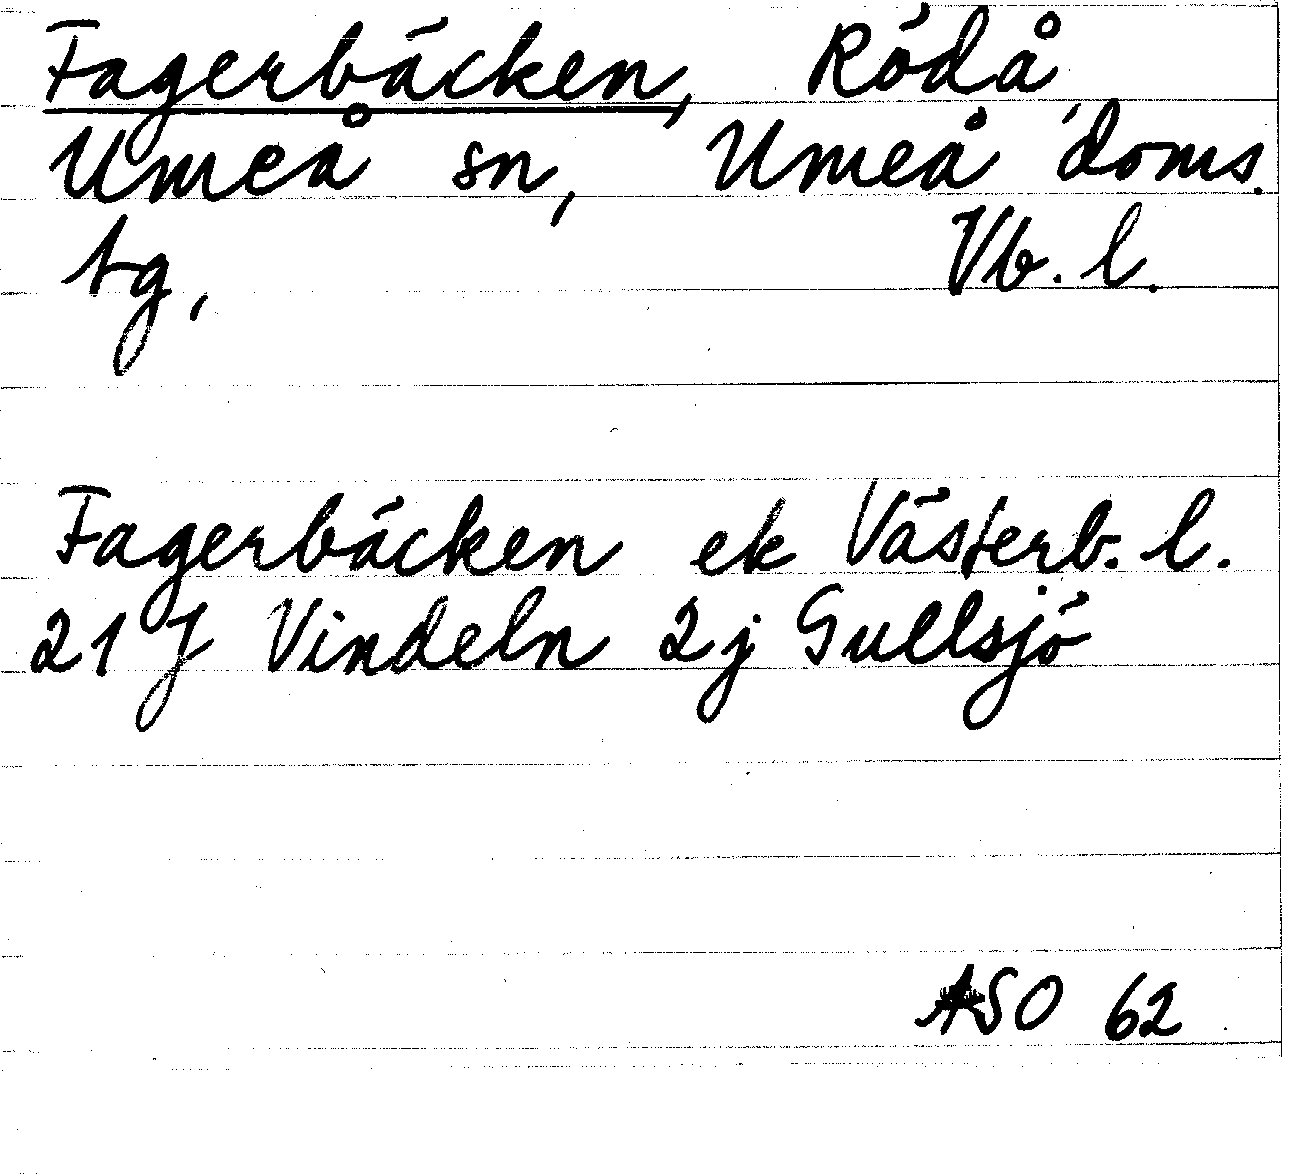 Fagerbäcken, Rödå,
Umeå sn, Umeå doms.
tg, Vb. l.
Fagerbäcken ek Västerb. l.
21 J Vindeln 2j Gullsjö
ASO 62